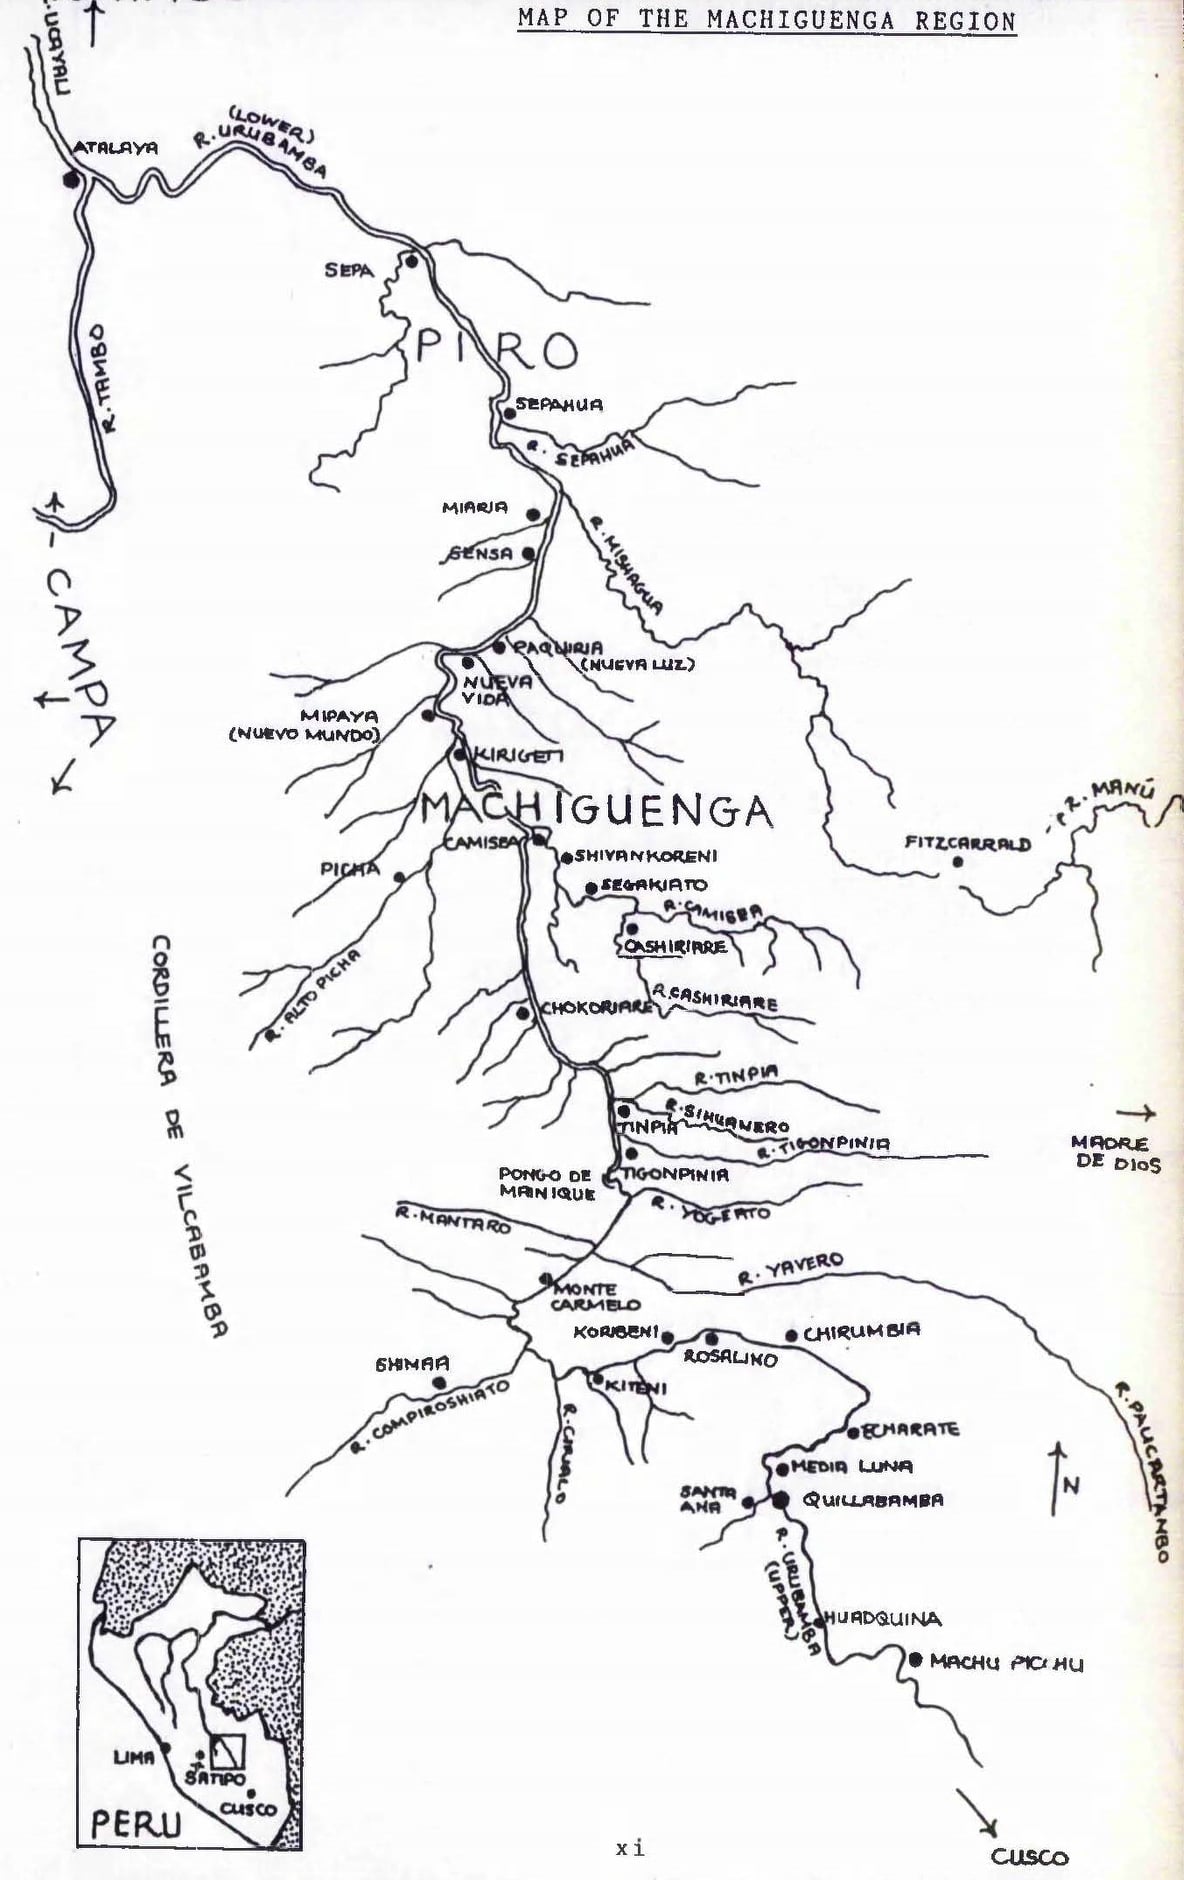 MAP OF THE MACHIGUENGA REGION
UCAYALI
ATALAYA
(LOWER)
R. URUBAMBA
SEPA
PIRO
R. TAMBO
SEPAHUA
R. SEPAHUA
MIARIA
SENSA
R. MISHAGUA
CAMPA
PAQUIRIA
(NUEVA LUZ)
NUEVA
VIDA
MIPAYA
(NUEVO MUNDO)
KIRIGETI
MACHIGUENGA
R. MANÚ
FITZCARRALD
CAMISEA
SHIVANKORENI
PICHA
SEGAKIATO
R. CAMISEA
CASHIRIARE
R. ALTO PICHA
R. CASHIRIARE
CHOKORIARE
CORDILLERA DE VILCABAMBA
R. TINPIA
R. SIHUANERO
TINPIA
R. TIGONPINIA
MADRE
DE DIOS
PONGO DE
MAINIQUE
TIGONPINIA
R. YOGEATO
R. MANTARO
R. YAVERO
MONTE
CARMELO
KORIBENI
ROSALINO
CHIRUMBIA
SHIMAA
R. COMPIROSHIATO
KITENI
R. CIRIALO
R. PAUCARTANBO
ECHARATE
MEDIA LUNA
SANTA
ANA
QUILLABAMBA
N
R. URUBAMBA
(UPPER)
HUADQUINA
MACHU PICCHU
LIMA
SATIPO
CUSCO
PERU
xi
CUSCO